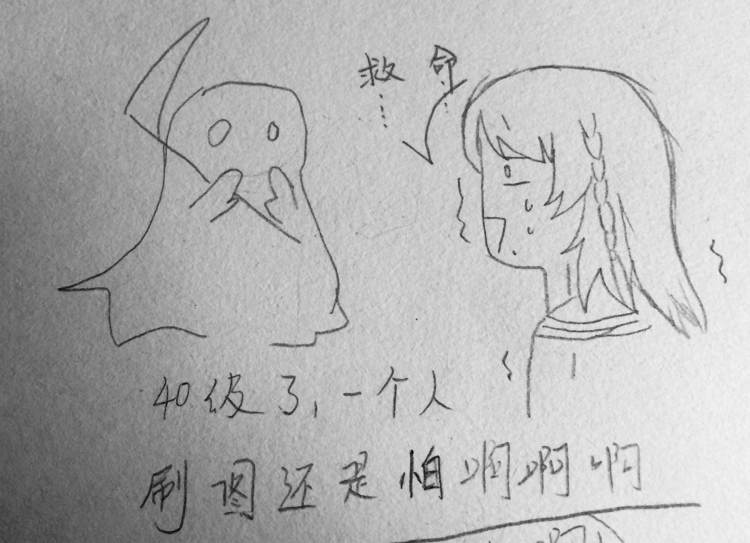 救命
……
40级了,一个人
刷图还是怕啊啊啊